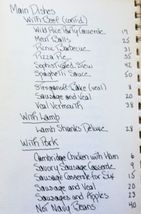 Main Dishes
With Beef (cont'd)
Wild Rice Party Casserole 17
Meat Balls 25
Picnic Barbecue 31
Pizza Pie 35
Sophisticated Stew 42
Spaghetti Sauce 50
Stroganoff Cake (veal) 8
Sausage and Veal 20
Veal Vermouth 38
With Lamb
Lamb Shanks Deluxe 28
With Pork
Cambridge Chicken with Ham 6
Savory Sausage Casserole 9
Sausage Casserole for Six 15
Sausage and Veal 20
Sausages and Apples 23
Nor Navy Beans 40